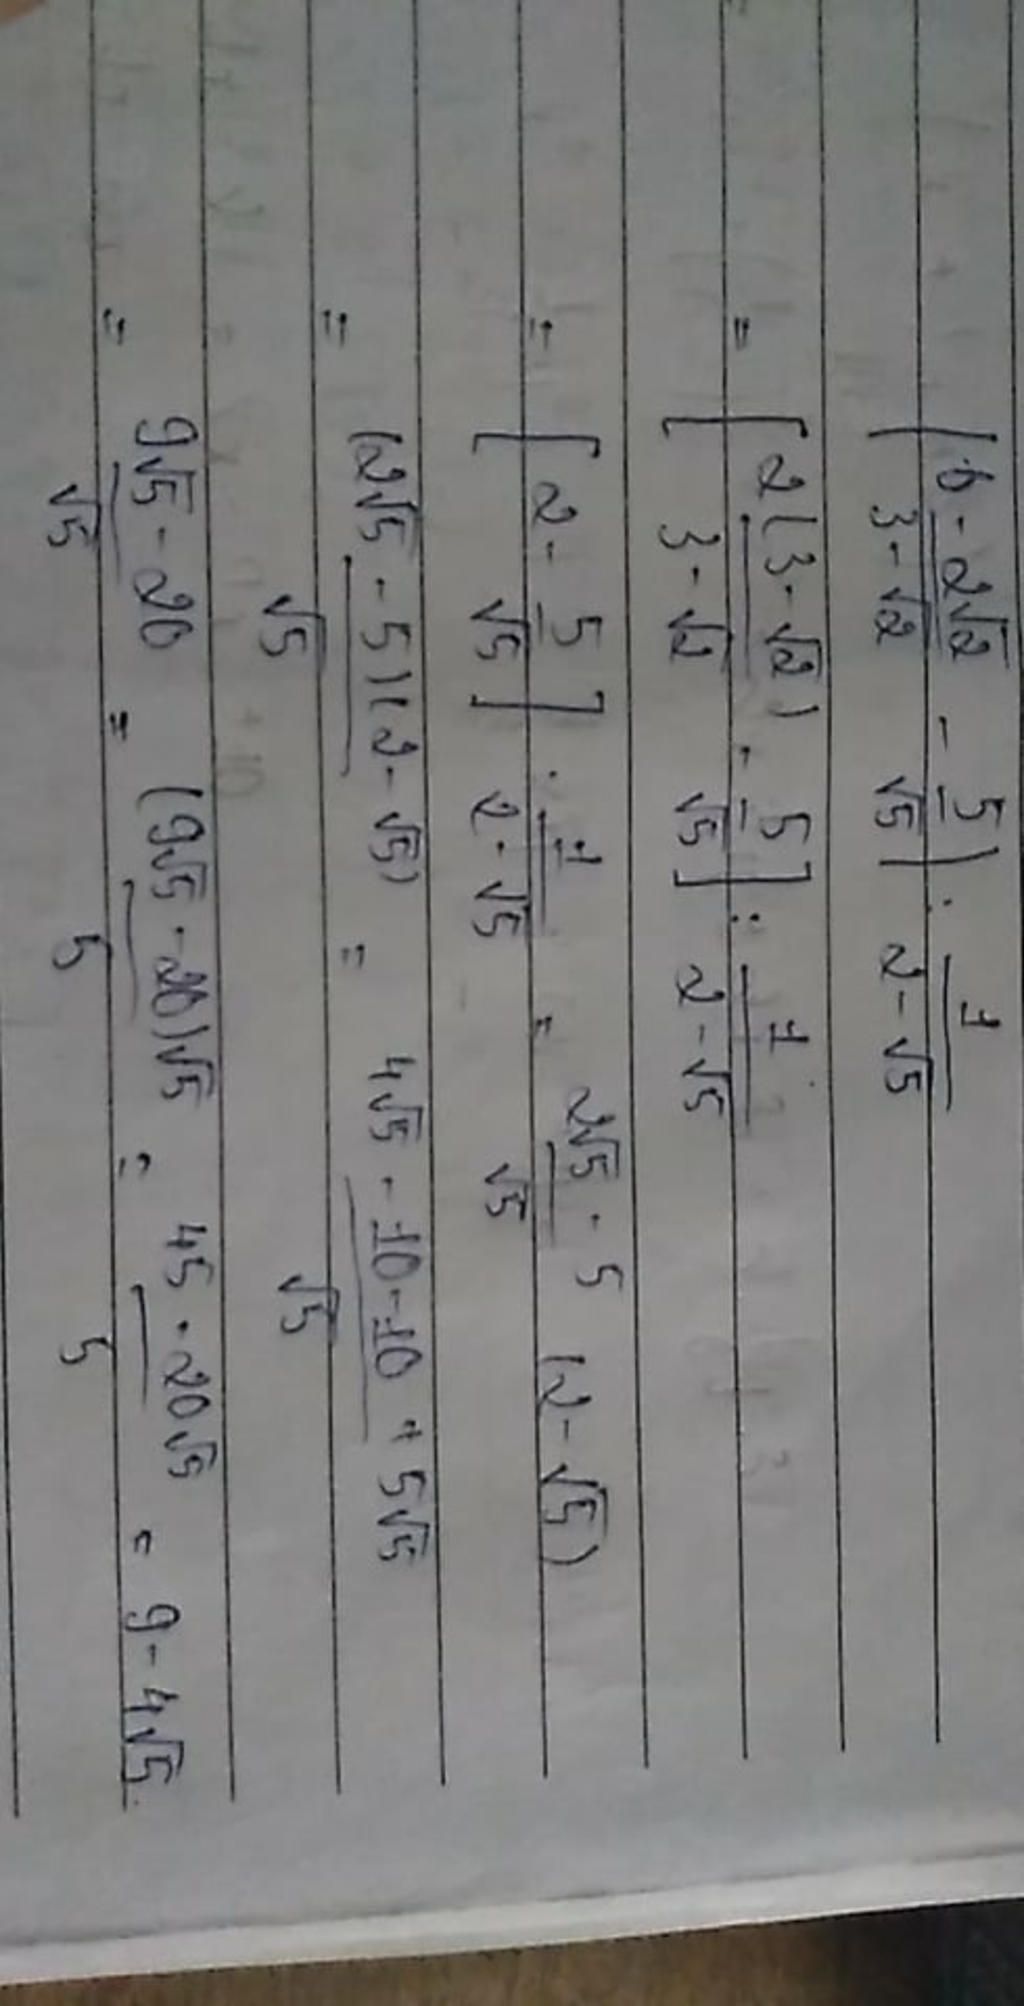 (6-2√2/3-√2 - 5/√5) : 1/2-√5
= [2(3-√2)/3-√2 - 5/√5] : 1/2-√5
= [2 - 5/√5] : 1/2-√5 = 2√5-5/√5 (2-√5)
= (2√5-5)(2-√5)/√5 = 4√5-10-10+5√5/√5
= 9√5-20/√5 = (9√5-20)√5/5 = 45-20√5/5 = 9-4√5.